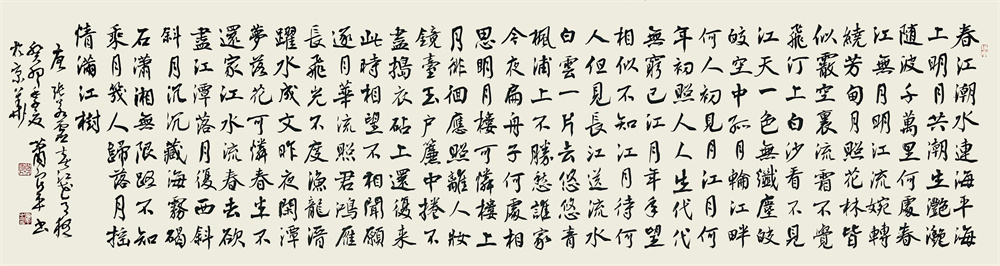 春江潮水連海平海
上明月共潮生灩灩
隨波千萬里何處春
江無月明江流婉轉
繞芳甸月照花林皆
似霰空裏流霜不覺
飛汀上白沙看不見
江天一色無纖塵皎
皎空中孤月輪江畔
何人初見月江月何
年初照人人生代代
無窮已江月年年望
相似不知江月待何
人但見長江送流水
白雲一片去悠悠青
楓浦上不勝愁誰家
今夜扁舟子何處相
思明月樓可憐樓上
月徘徊應照離人妝
鏡臺玉戶簾中捲不
盡搗衣砧上還復來
此時相望不相聞願
逐月華流照君鴻雁
長飛光不度漁龍潛
躍水成文昨夜閑潭
夢落花可憐春半不
還家江水流春去欲
盡江潭落月復西斜
斜月沉沉藏海霧碣
石瀟湘無限路不知
乘月幾人歸落月搖
情滿江樹
唐張若虛春江花月夜
癸卯孟夏
於京華
書